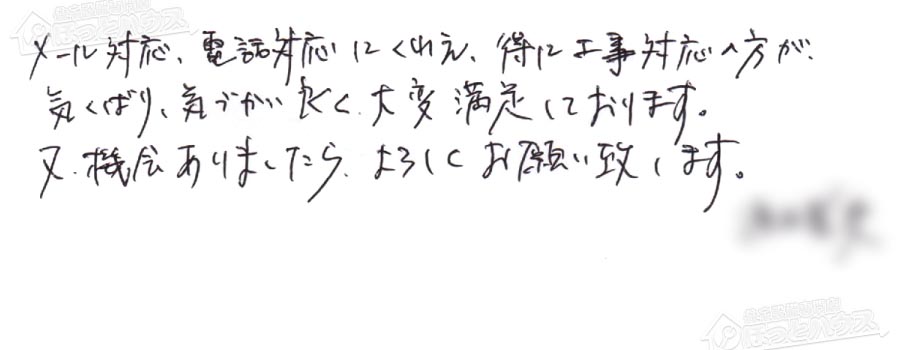 メール対応、電話対応にくわえ、得に工事対応の方が、
気くばり、気づかい良く、大変満足しております。
又、機会ありましたら、よろしくお願い致します。